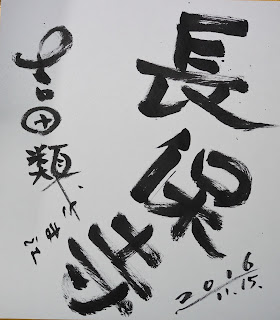 長保寺
吉田類
2016
11.15.